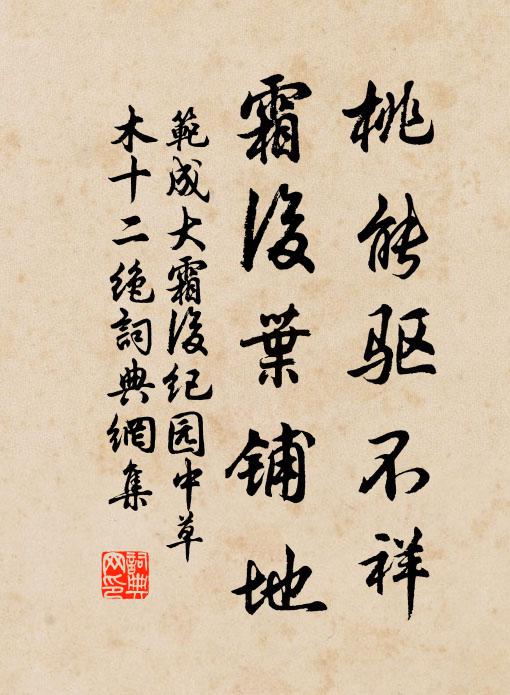 桃能驱不祥
霜後葉铺地
範成大霜後纪园中草
木十二绝詞典網集
詞典网印